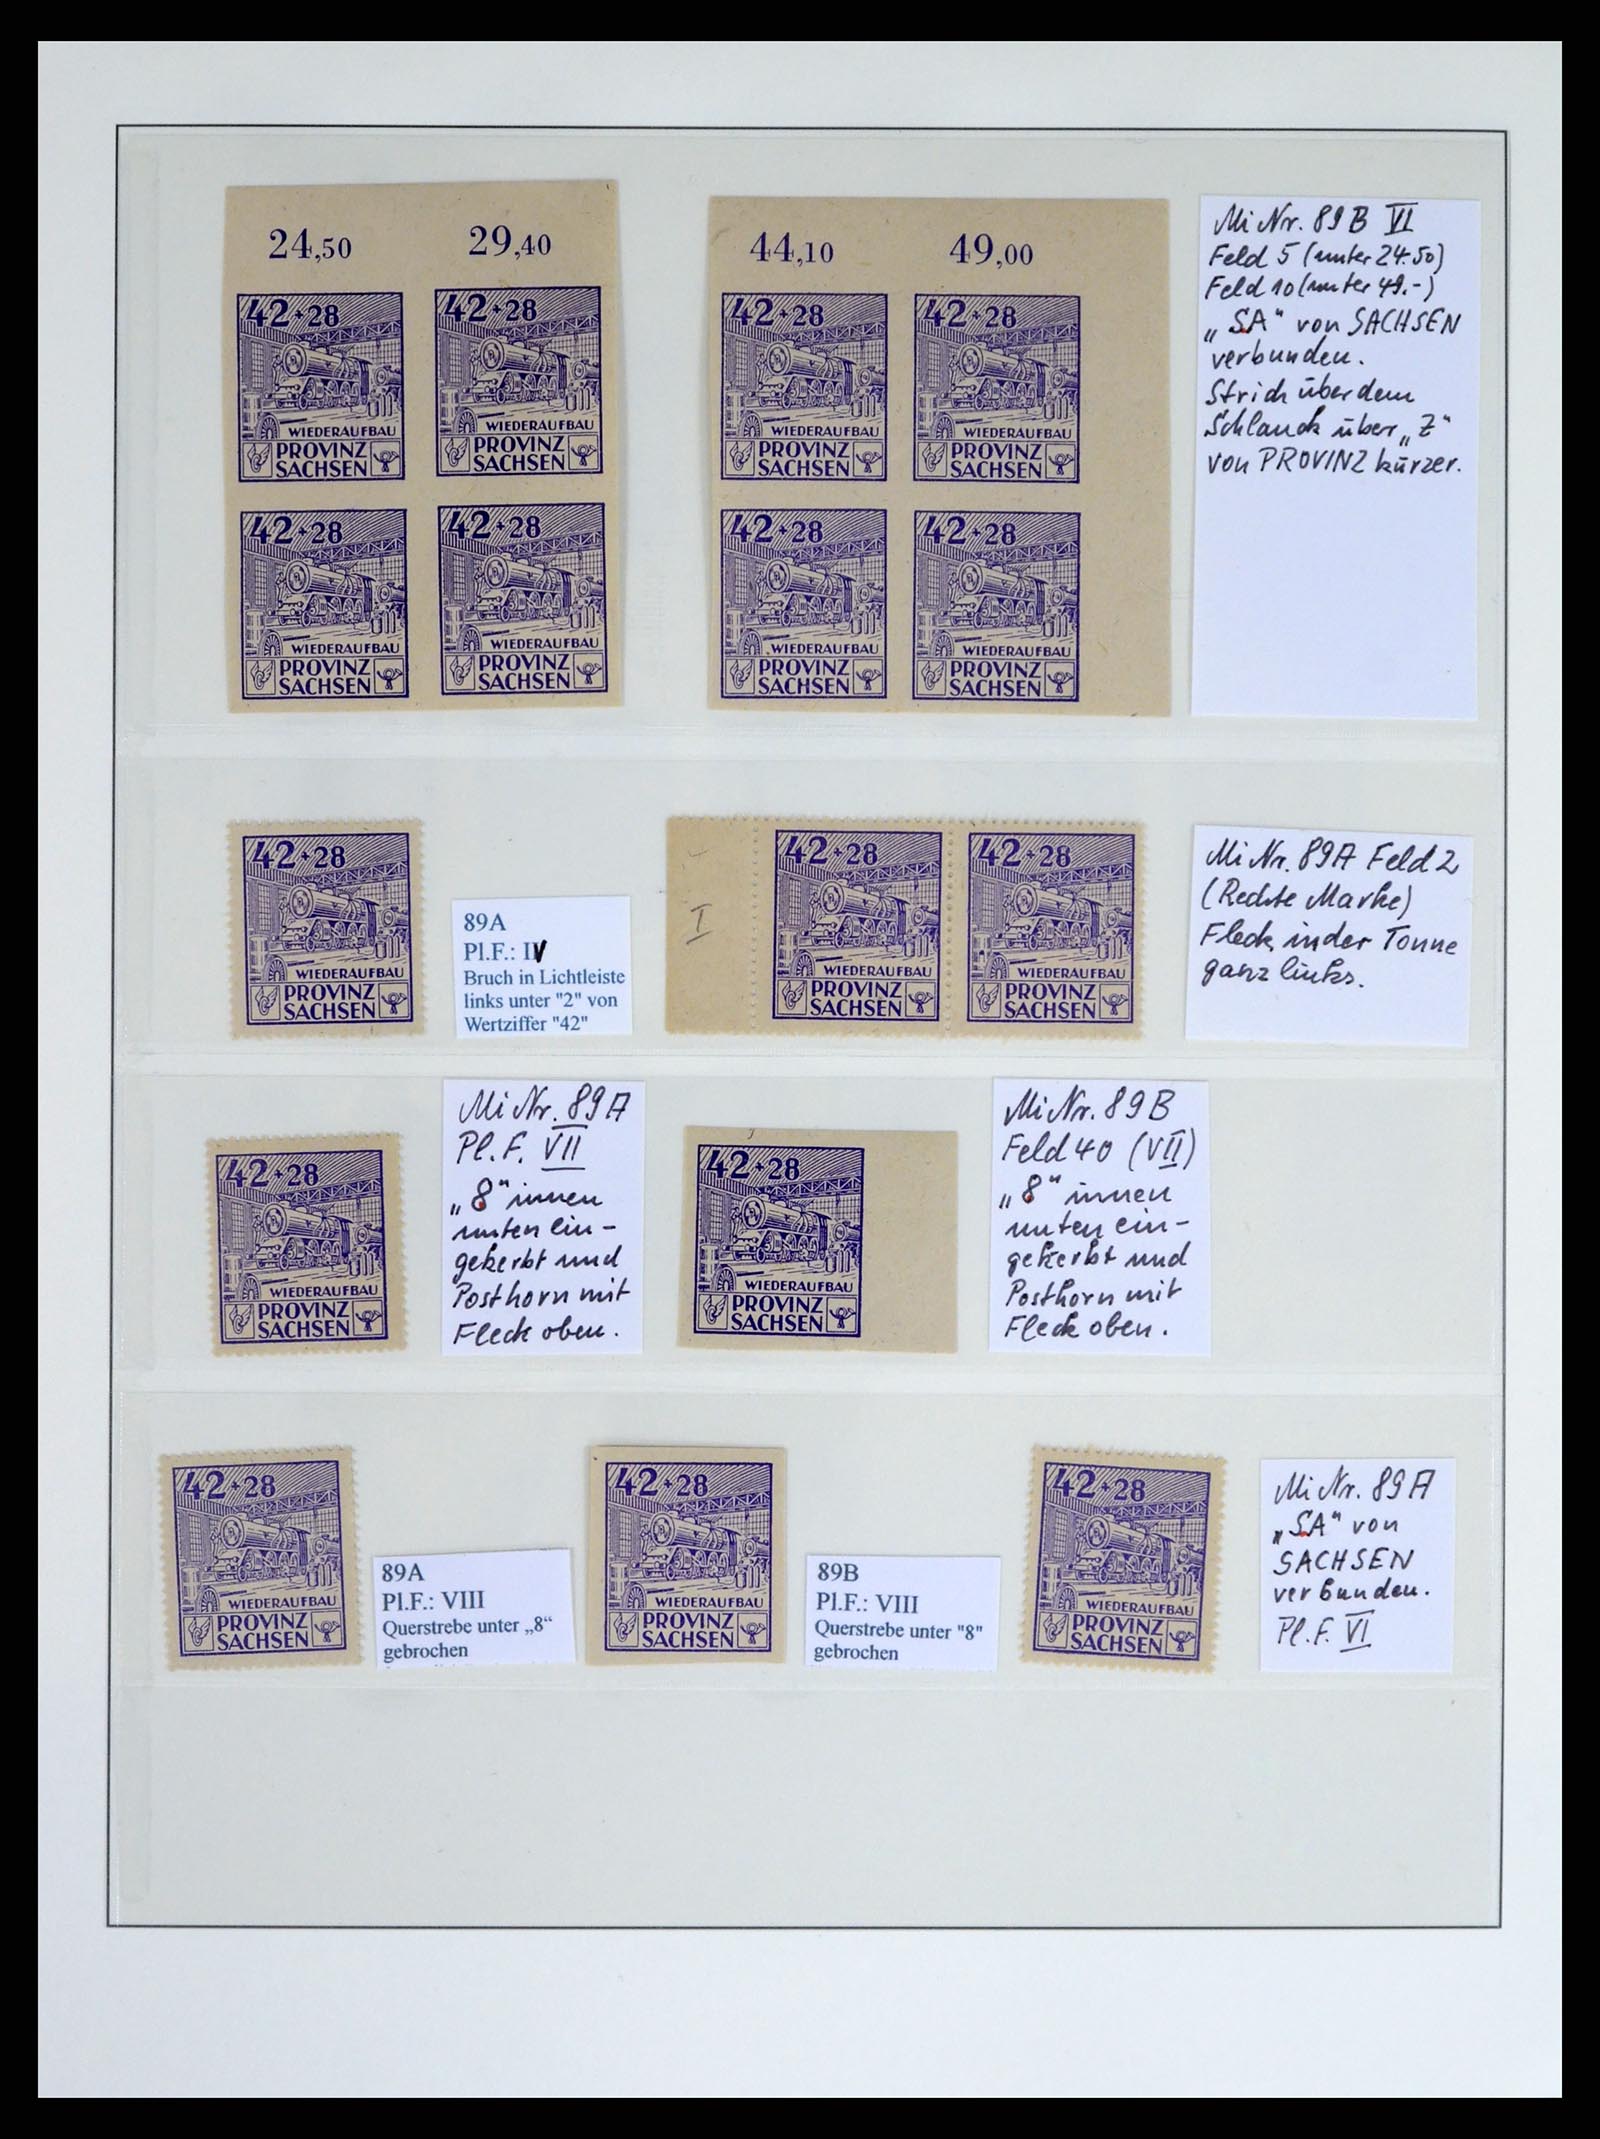 24,50 29,40
42+28 42+28
WIEDERAUFBAU WIEDERAUFBAU
PROVINZ PROVINZ
SACHSEN SACHSEN
42+28 42+28
WIEDERAUFBAU WIEDERAUFBAU
PROVINZ PROVINZ
SACHSEN SACHSEN
44,10 49,00
42+28 42+28
WIEDERAUFBAU WIEDERAUFBAU
PROVINZ PROVINZ
SACHSEN SACHSEN
42+28 42+28
WIEDERAUFBAU WIEDERAUFBAU
PROVINZ PROVINZ
SACHSEN SACHSEN
Mi Nr. 89 B VI
Feld 5 (unter 24.50)
Feld 10 (unter 49.-)
„SA“ von SACHSEN
verbunden.
Strich über dem
Schlauck über „Z“
von PROVINZ kürzer.
42+28
WIEDERAUFBAU
PROVINZ
SACHSEN
89A
Pl.F.: IV
Bruch in Lichtleiste
links unter "2" von
Wertziffer "42"
I
42+28 42+28
WIEDERAUFBAU WIEDERAUFBAU
PROVINZ PROVINZ
SACHSEN SACHSEN
Mi Nr. 89A Feld 2
(Rechte Marke)
Fleck in der Tonne
ganz links.
42+28
WIEDERAUFBAU
PROVINZ
SACHSEN
Mi Nr. 89A
Pl. F. VII
„8“ innen
unten ein-
gekerbt und
Posthorn mit
Fleck oben.
42+28
WIEDERAUFBAU
PROVINZ
SACHSEN
Mi Nr. 89B
Feld 40 (VII)
„8“ innen
unten ein-
gekerbt und
Posthorn mit
Fleck oben.
42+28
WIEDERAUFBAU
PROVINZ
SACHSEN
89A
Pl.F.: VIII
Querstrebe unter „8“
gebrochen
42+28
WIEDERAUFBAU
PROVINZ
SACHSEN
89B
Pl.F.: VIII
Querstrebe unter "8"
gebrochen
42+28
WIEDERAUFBAU
PROVINZ
SACHSEN
Mi Nr. 89A
„SA“ von
SACHSEN
verbunden.
Pl. F. VI